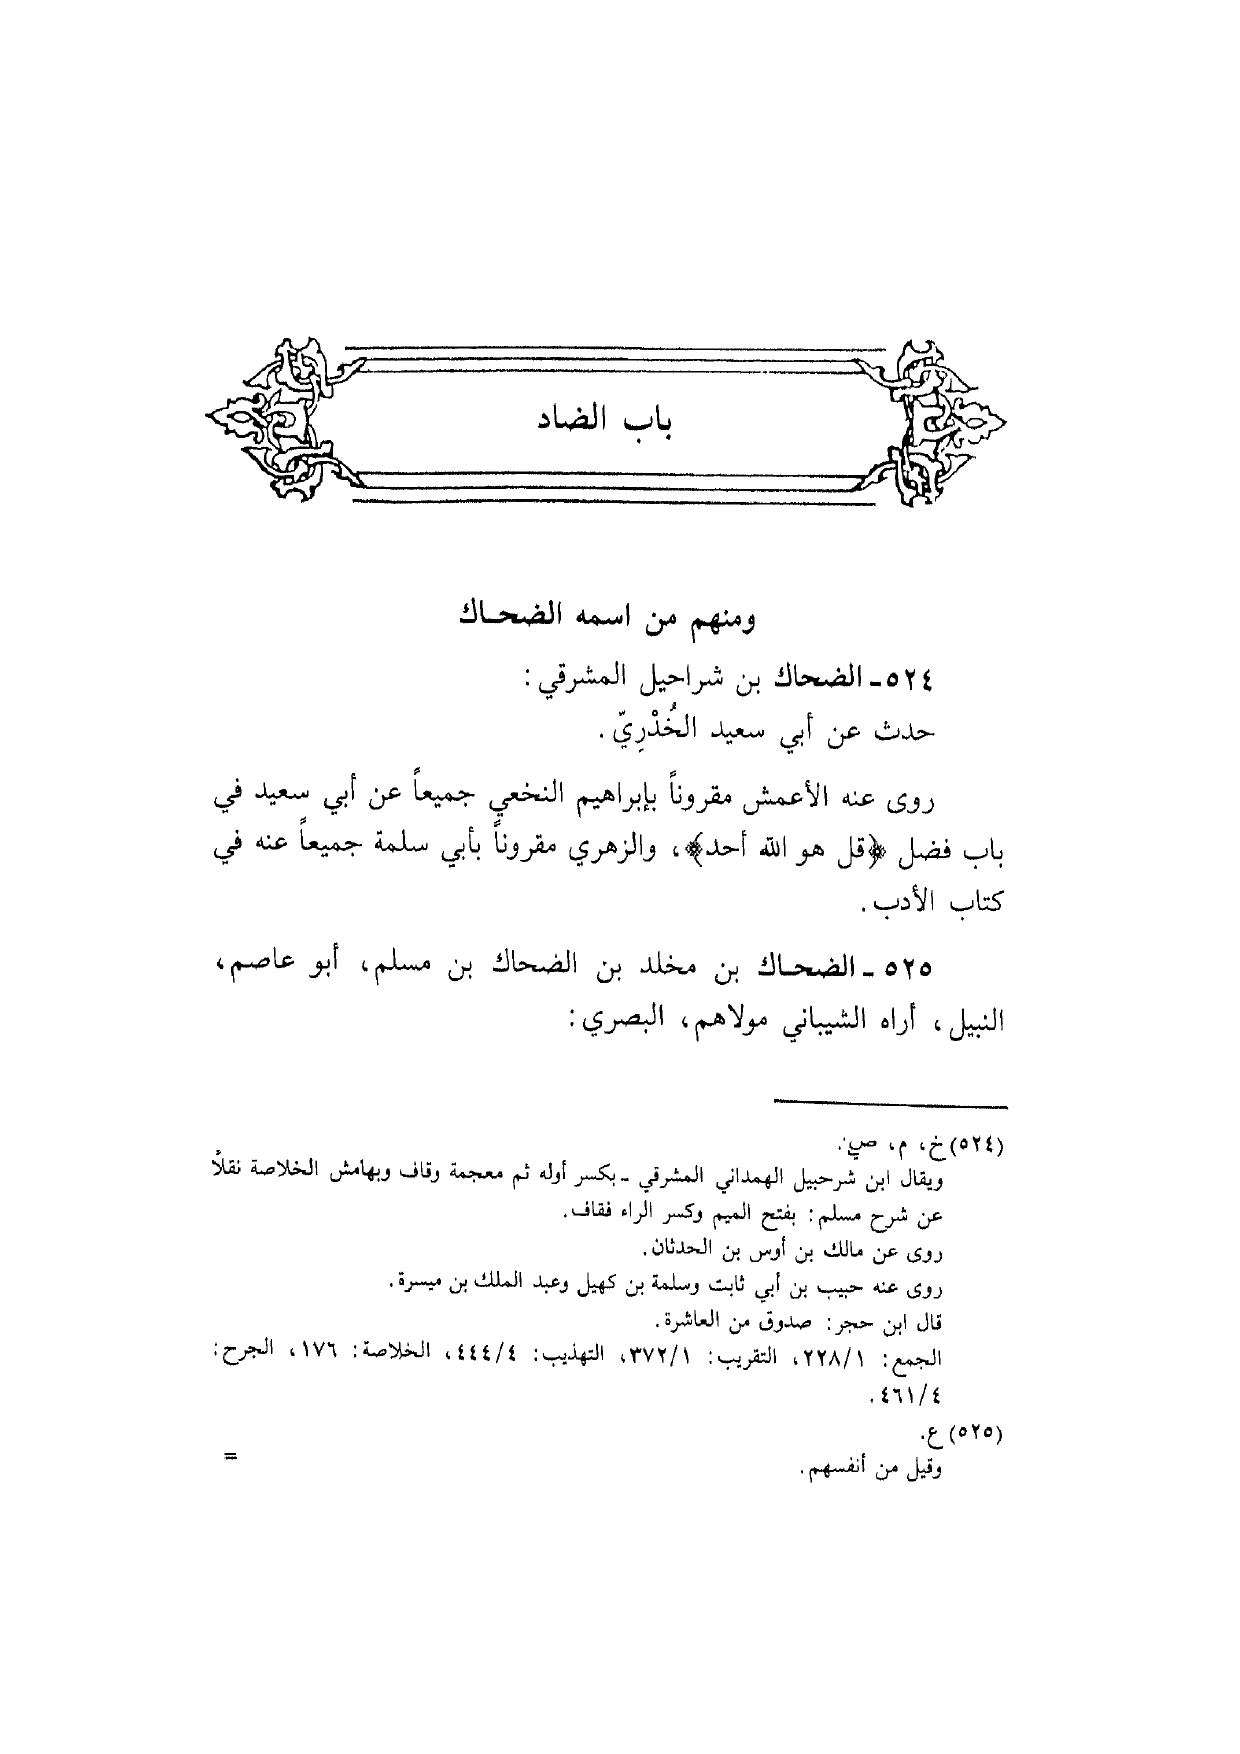 باب الضاد
ومنهم من اسمه الضحاك
٥٢٤ - الضحاك بن شراحيل المشرقي :
حدث عن أبي سعيد الخُدْرِيّ .
روى عنه الأعمش مقروناً بإبراهيم النخعي جميعاً عن أبي سعيد في
باب فضل ﴿قل هو الله أحد﴾، والزهري مقروناً بأبي سلمة جميعاً عنه في
كتاب الأدب .
٥٢٥ - الضحاك بن مخلد بن الضحاك بن مسلم، أبو عاصم،
النبيل، أراه الشيباني مولاهم، البصري :
(٥٢٤) خ، م، ص.
ويقال ابن شرحبيل الهمداني المشرقي - بكسر أوله ثم معجمة وقاف وبهامش الخلاصة نقلاً
عن شرح مسلم : بفتح الميم وكسر الراء فقاف.
روى عن مالك بن أوس بن الحدثان.
روى عنه حبيب بن أبي ثابت وسلمة بن كهيل وعبد الملك بن ميسرة.
قال ابن حجر : صدوق من العاشرة.
الجمع : ٢٢٨/١، التقريب : ٣٧٢/١، التهذيب : ٤٤٤/٤، الخلاصة : ١٧٦، الجرح :
٤٦١/٤ .
(٥٢٥) ع.
وقيل من أنفسهم.
=